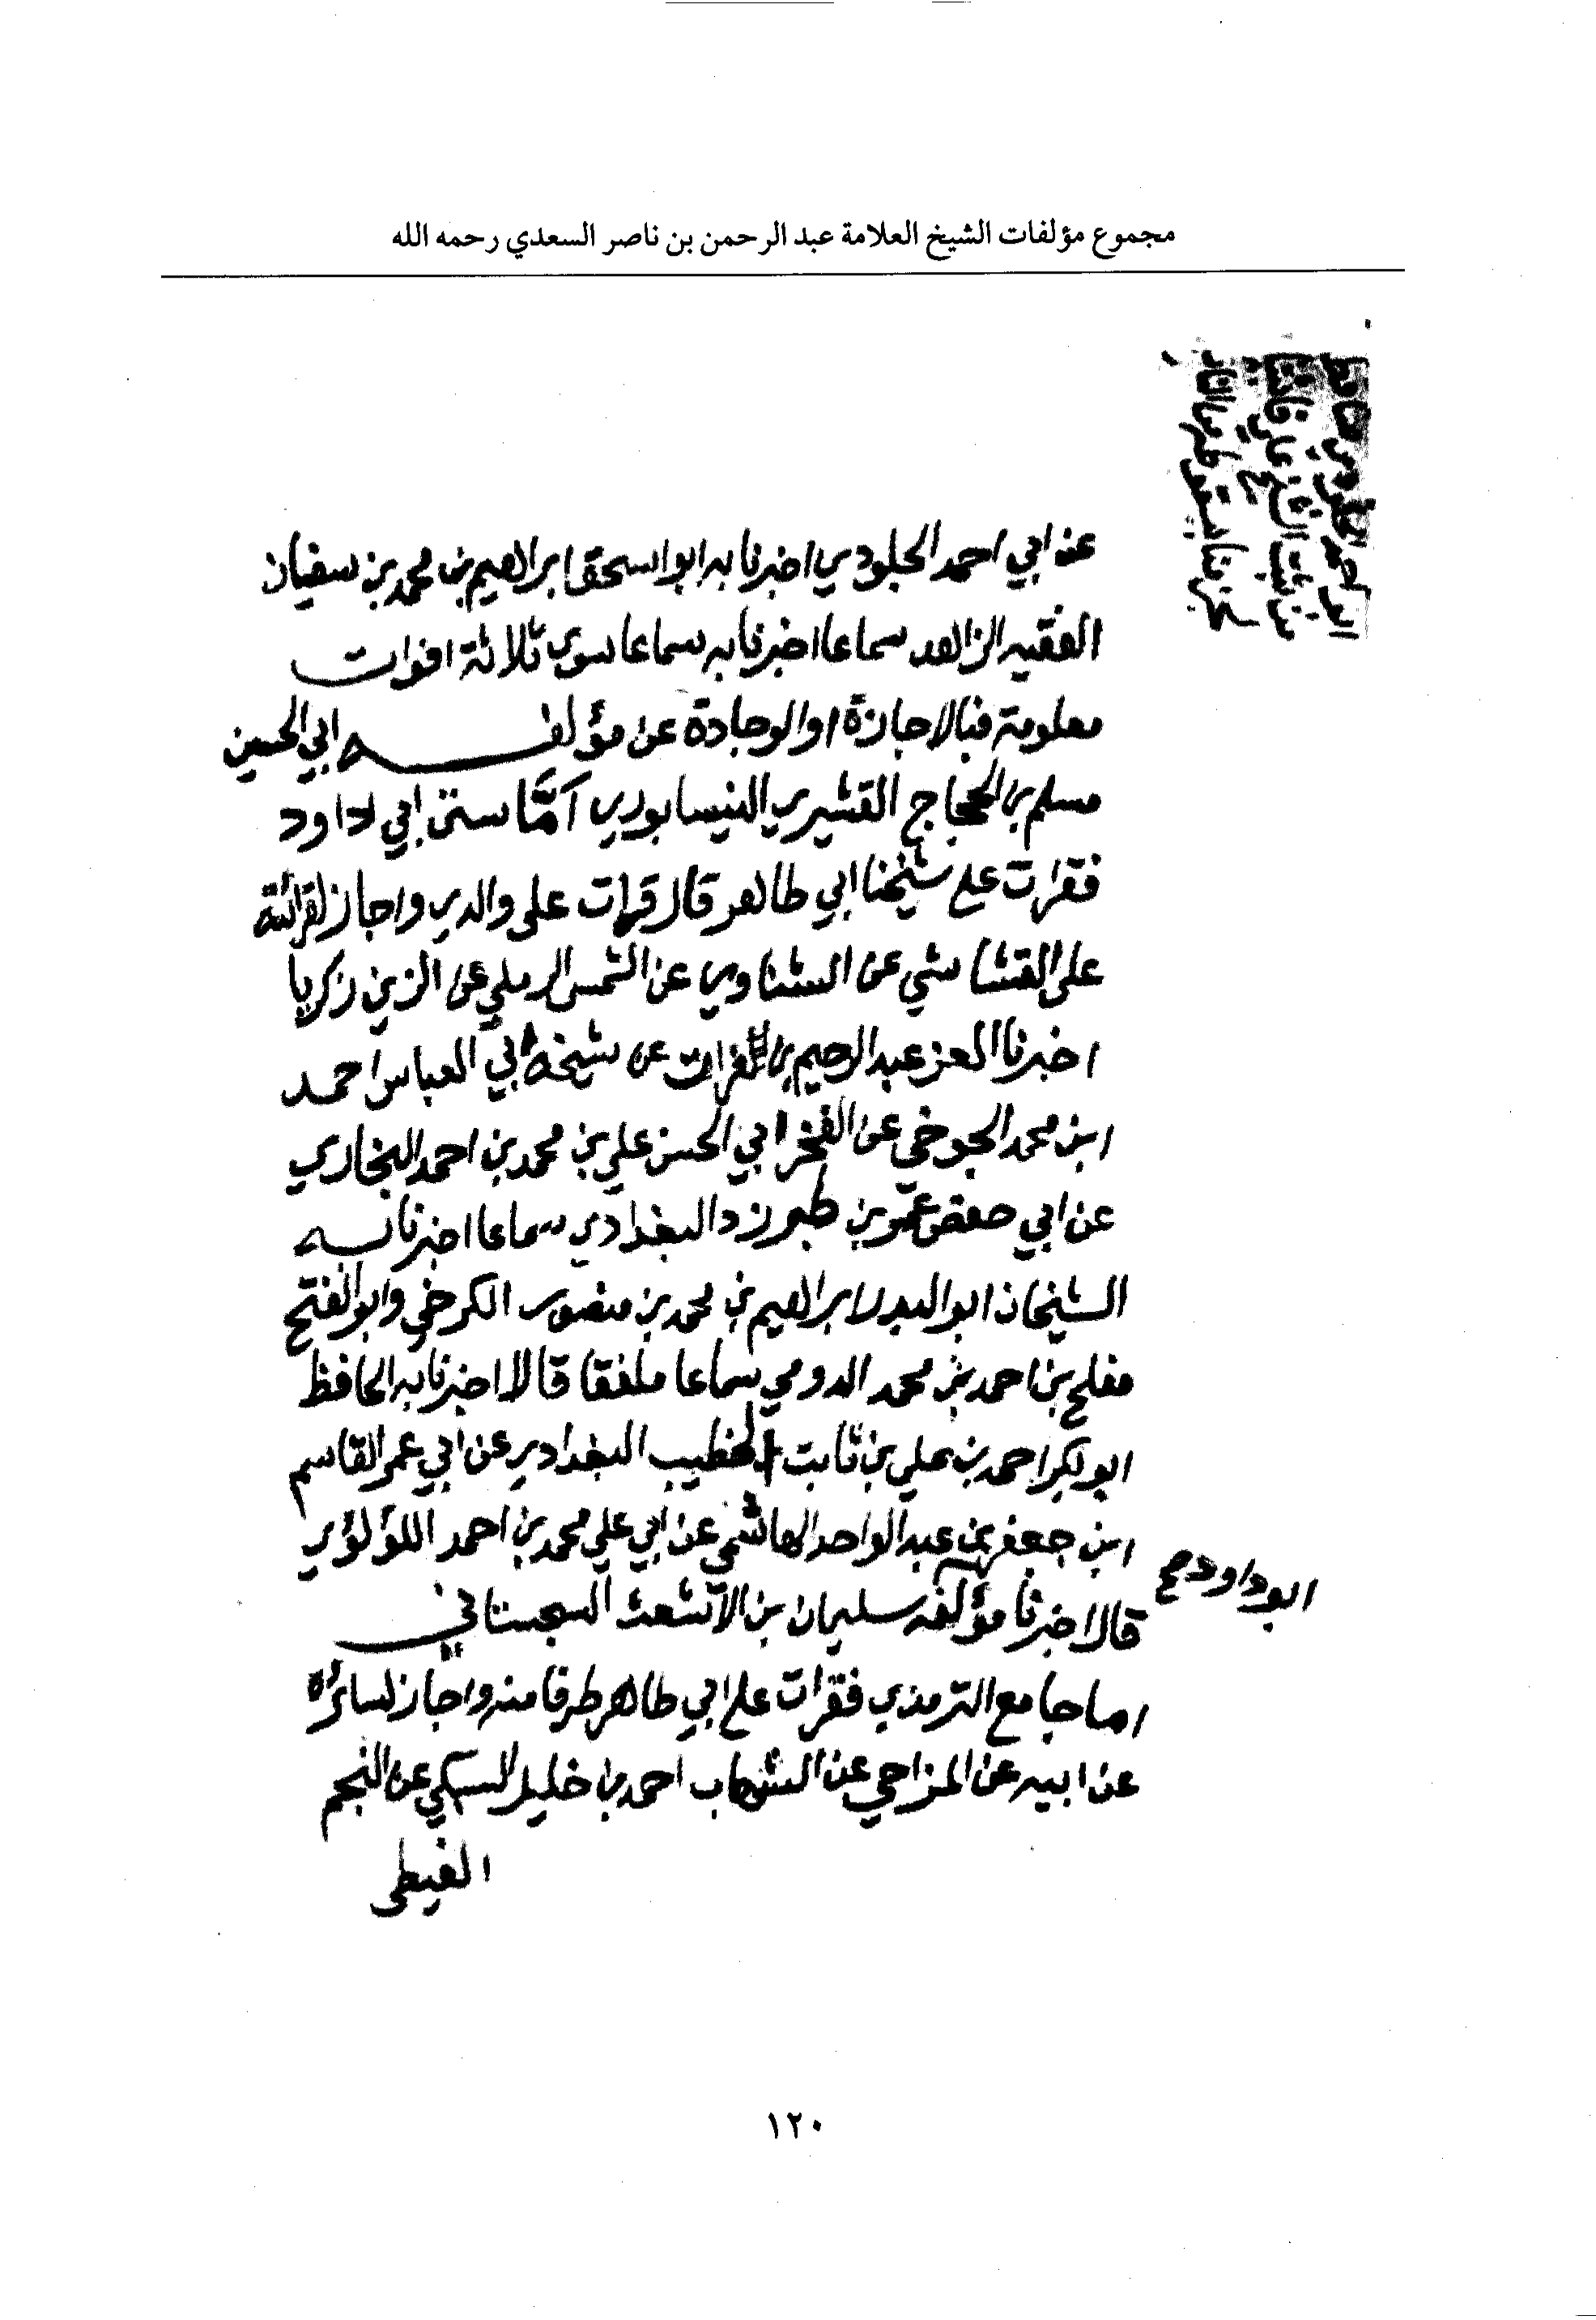 مجموع مؤلفات الشيخ العلامة عبد الرحمن بن ناصر السعدي رحمه الله
عن ابي احمد الجلودي اخبرنا به ابو اسحق ابراهيم بن محمد بن سفيان
الفقيه الزاهد سماعا اخبرنا به سماعا سوى ثلاثة افوات
معلومة فبالاجازة او الوجادة عن مؤلفه ابي الحسين
مسلم بن الحجاج القشيري النيسابوري أمَّا سنن ابي داود
فقرات على شيخنا ابي طاهر قال قرات على والدي واجاز لقرائته
على القشاشي عن الشناوي عن الشمس الرملي عن الزين زكريا
اخبرنا العز عبد الرحيم بن الفرات عن شيخه ابي العباس احمد
ابن محمد الجوخي عن الفخر ابي الحسن علي بن محمد بن احمد البخاري
عن ابي حفص عمر بن طبرزد البغدادي سماعا اخبرنا به
الشيخان ابو البدر ابراهيم بن محمد بن منصور الكرخي وابو الفتح
مفلح بن احمد بن محمد الدومي سماعا ملفقا قالا اخبرنا به الحافظ
ابو بكر احمد بن علي بن ثابت الخطيب البغدادي عن ابي عمر القاسم
ابن جعفر بن عبد الواحد الهاشمي عن ابي علي محمد بن احمد اللؤلؤي
ابو داود صح
قال اخبرنا مؤلفه سليمان بن الأشعث السجستاني
اما جامع الترمذي فقرات على ابي طاهر طرفا منه واجاز لسائره
عن ابيه عن المزاحي عن الشهاب احمد بن خليل السبكي عن النجم
الغيطى
١٢٠